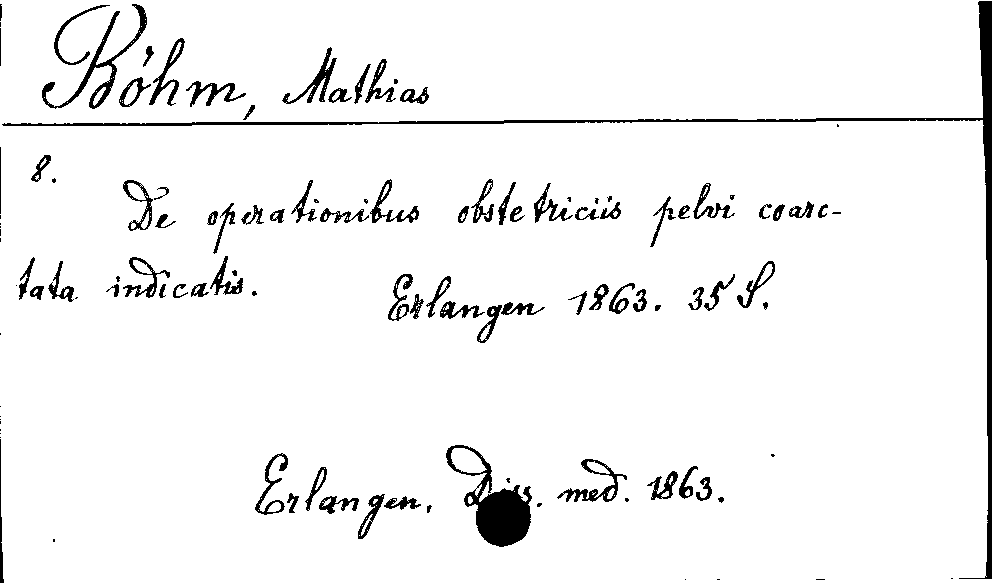 Böhm, Mathias
8.
De operationibus obstetriciis pelvi coarc-
tata indicatis.
Erlangen 1863. 35 S.
Erlangen. Diss. med. 1863.